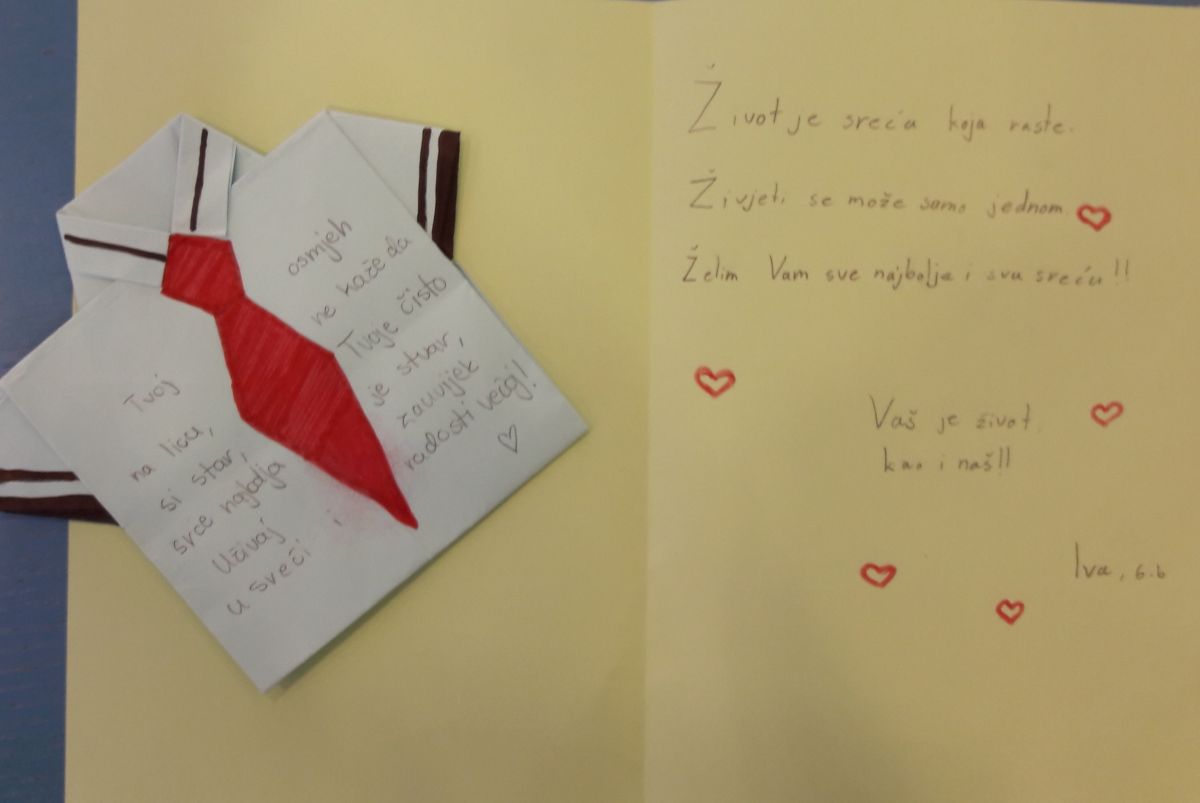 Tvoj osmjeh
na licu, ne kaže da
si star, Tvoje čisto
srce najbolja je stvar,
Uživaj zauvijek
u sreći i radosti većoj!
Život je sreća koja raste.
Živjeti se može samo jednom.
Želim Vam sve najbolje i svu sreću!!
Vaš je život,
kao i naš!!
Iva, 6.b